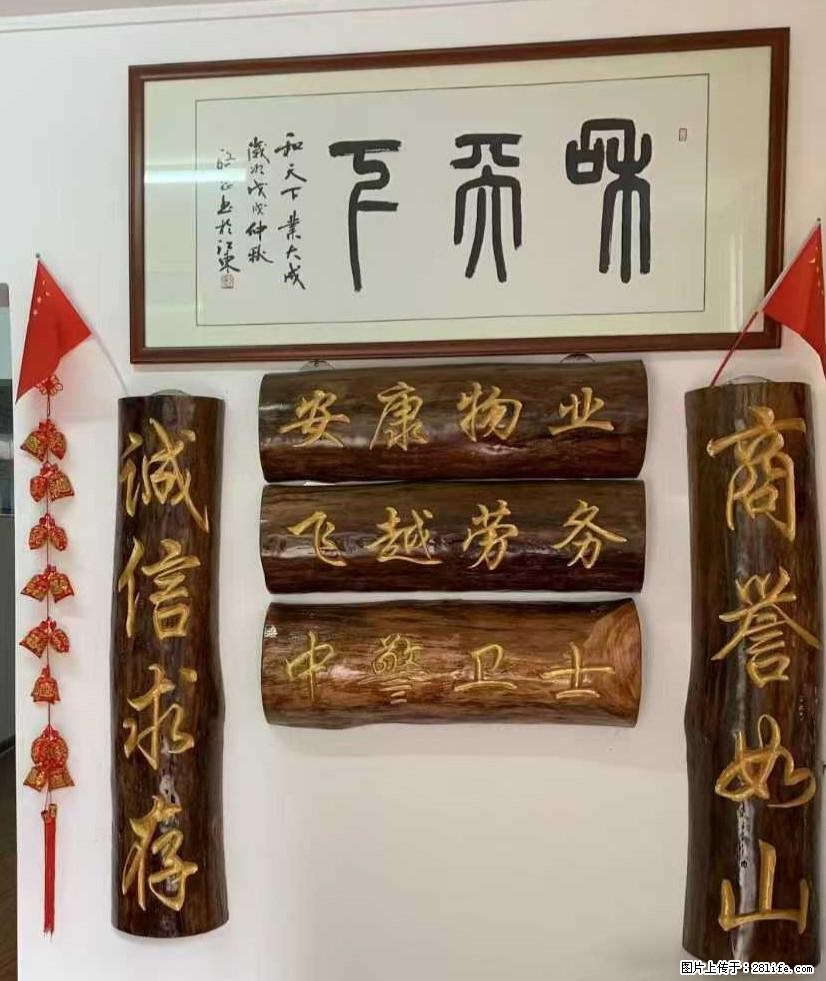 和天下
和天下業大成
歲次戊戌仲秋
於江東
安康物业
飞越劳务
中警卫士
商誉如山
诚信求存
图片上传于828life.com